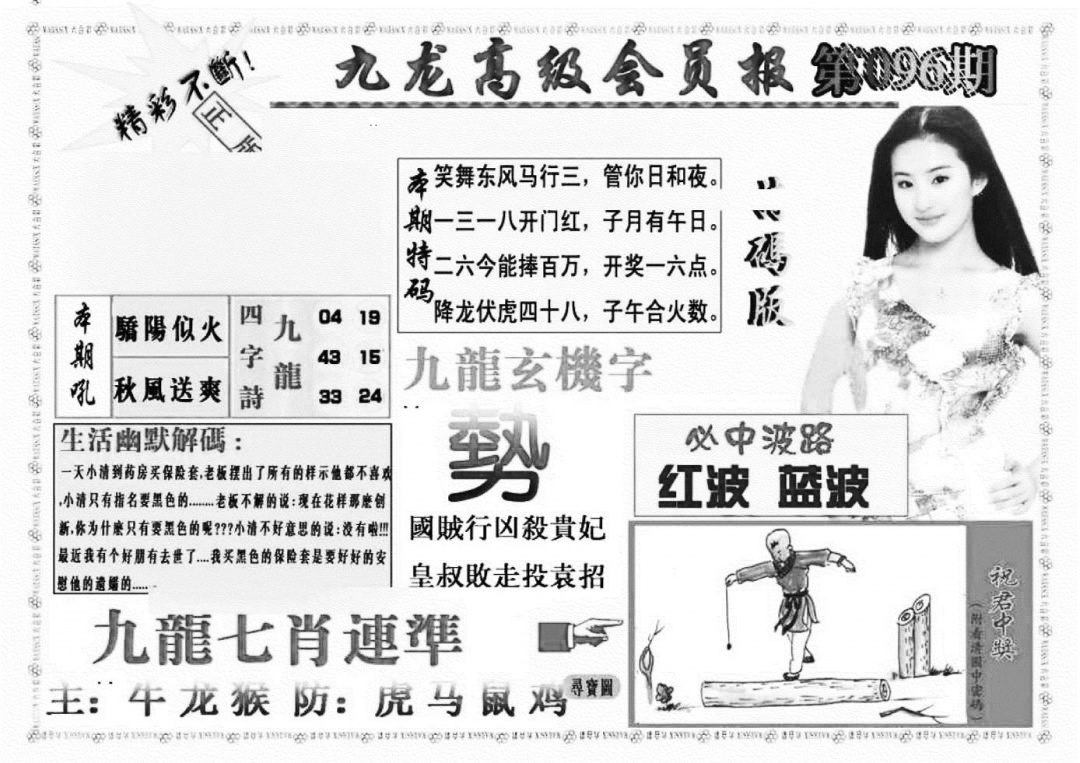 精彩不斷!
正版
九龙高级会员报
第096期
本期特码
笑舞东风马行三，管你日和夜。
一三一八开门红，子月有午日。
二六今能捧百万，开奖一六点。
降龙伏虎四十八，子午合火数。
碼版
本期吼
驕陽似火
秋風送爽
四字詩
九龍
04 19
43 15
33 24
九龍玄機字
勢
國賊行凶殺貴妃
皇叔敗走投袁招
生活幽默解碼：
一天小清到药房买保险套,老板摆出了所有的样示他都不喜欢
,小清只有指名要黑色的........老板不解的说:现在花样那麽创
新,你为什麽只有要黑色的呢???小清不好意思的说:没有啦!!!
最近我有个好朋有去世了....我买黑色的保险套是要好好的安
慰他的遗孀的.....
必中波路
红波 蓝波
九龍七肖連準
主：牛龙猴 防：虎马鼠鸡
尋寶圖
祝君中奖
（附看清圖中密碼）